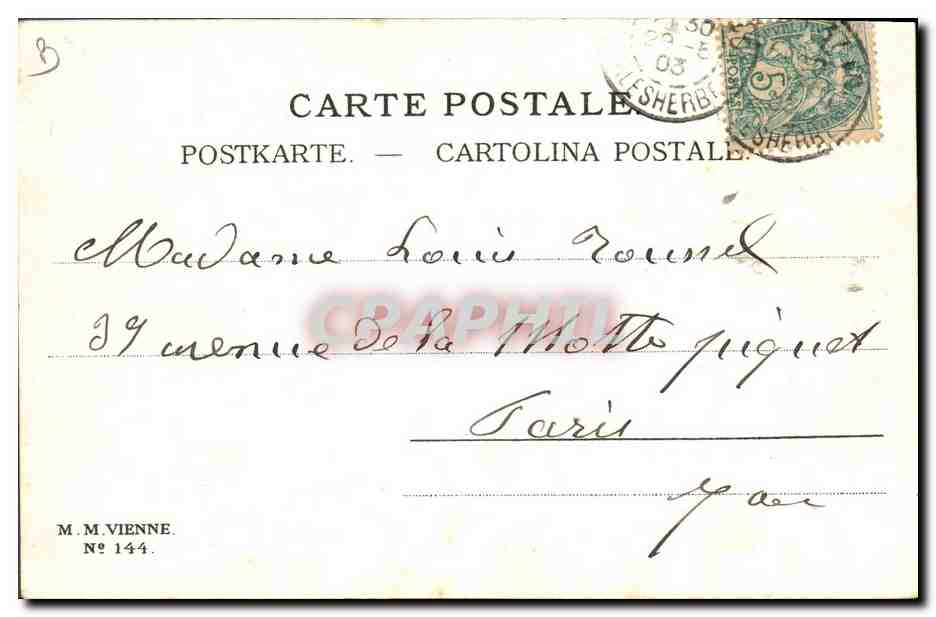 B
30
03
LESHERBE
5c
POSTES
LESHERBE
CARTE POSTALE.
POSTKARTE. — CARTOLINA POSTALE.
Madame Louis Roussel
39 avenue de la Motte piquet
Paris
CPAPHIL
M. M. VIENNE.
Nº 144.